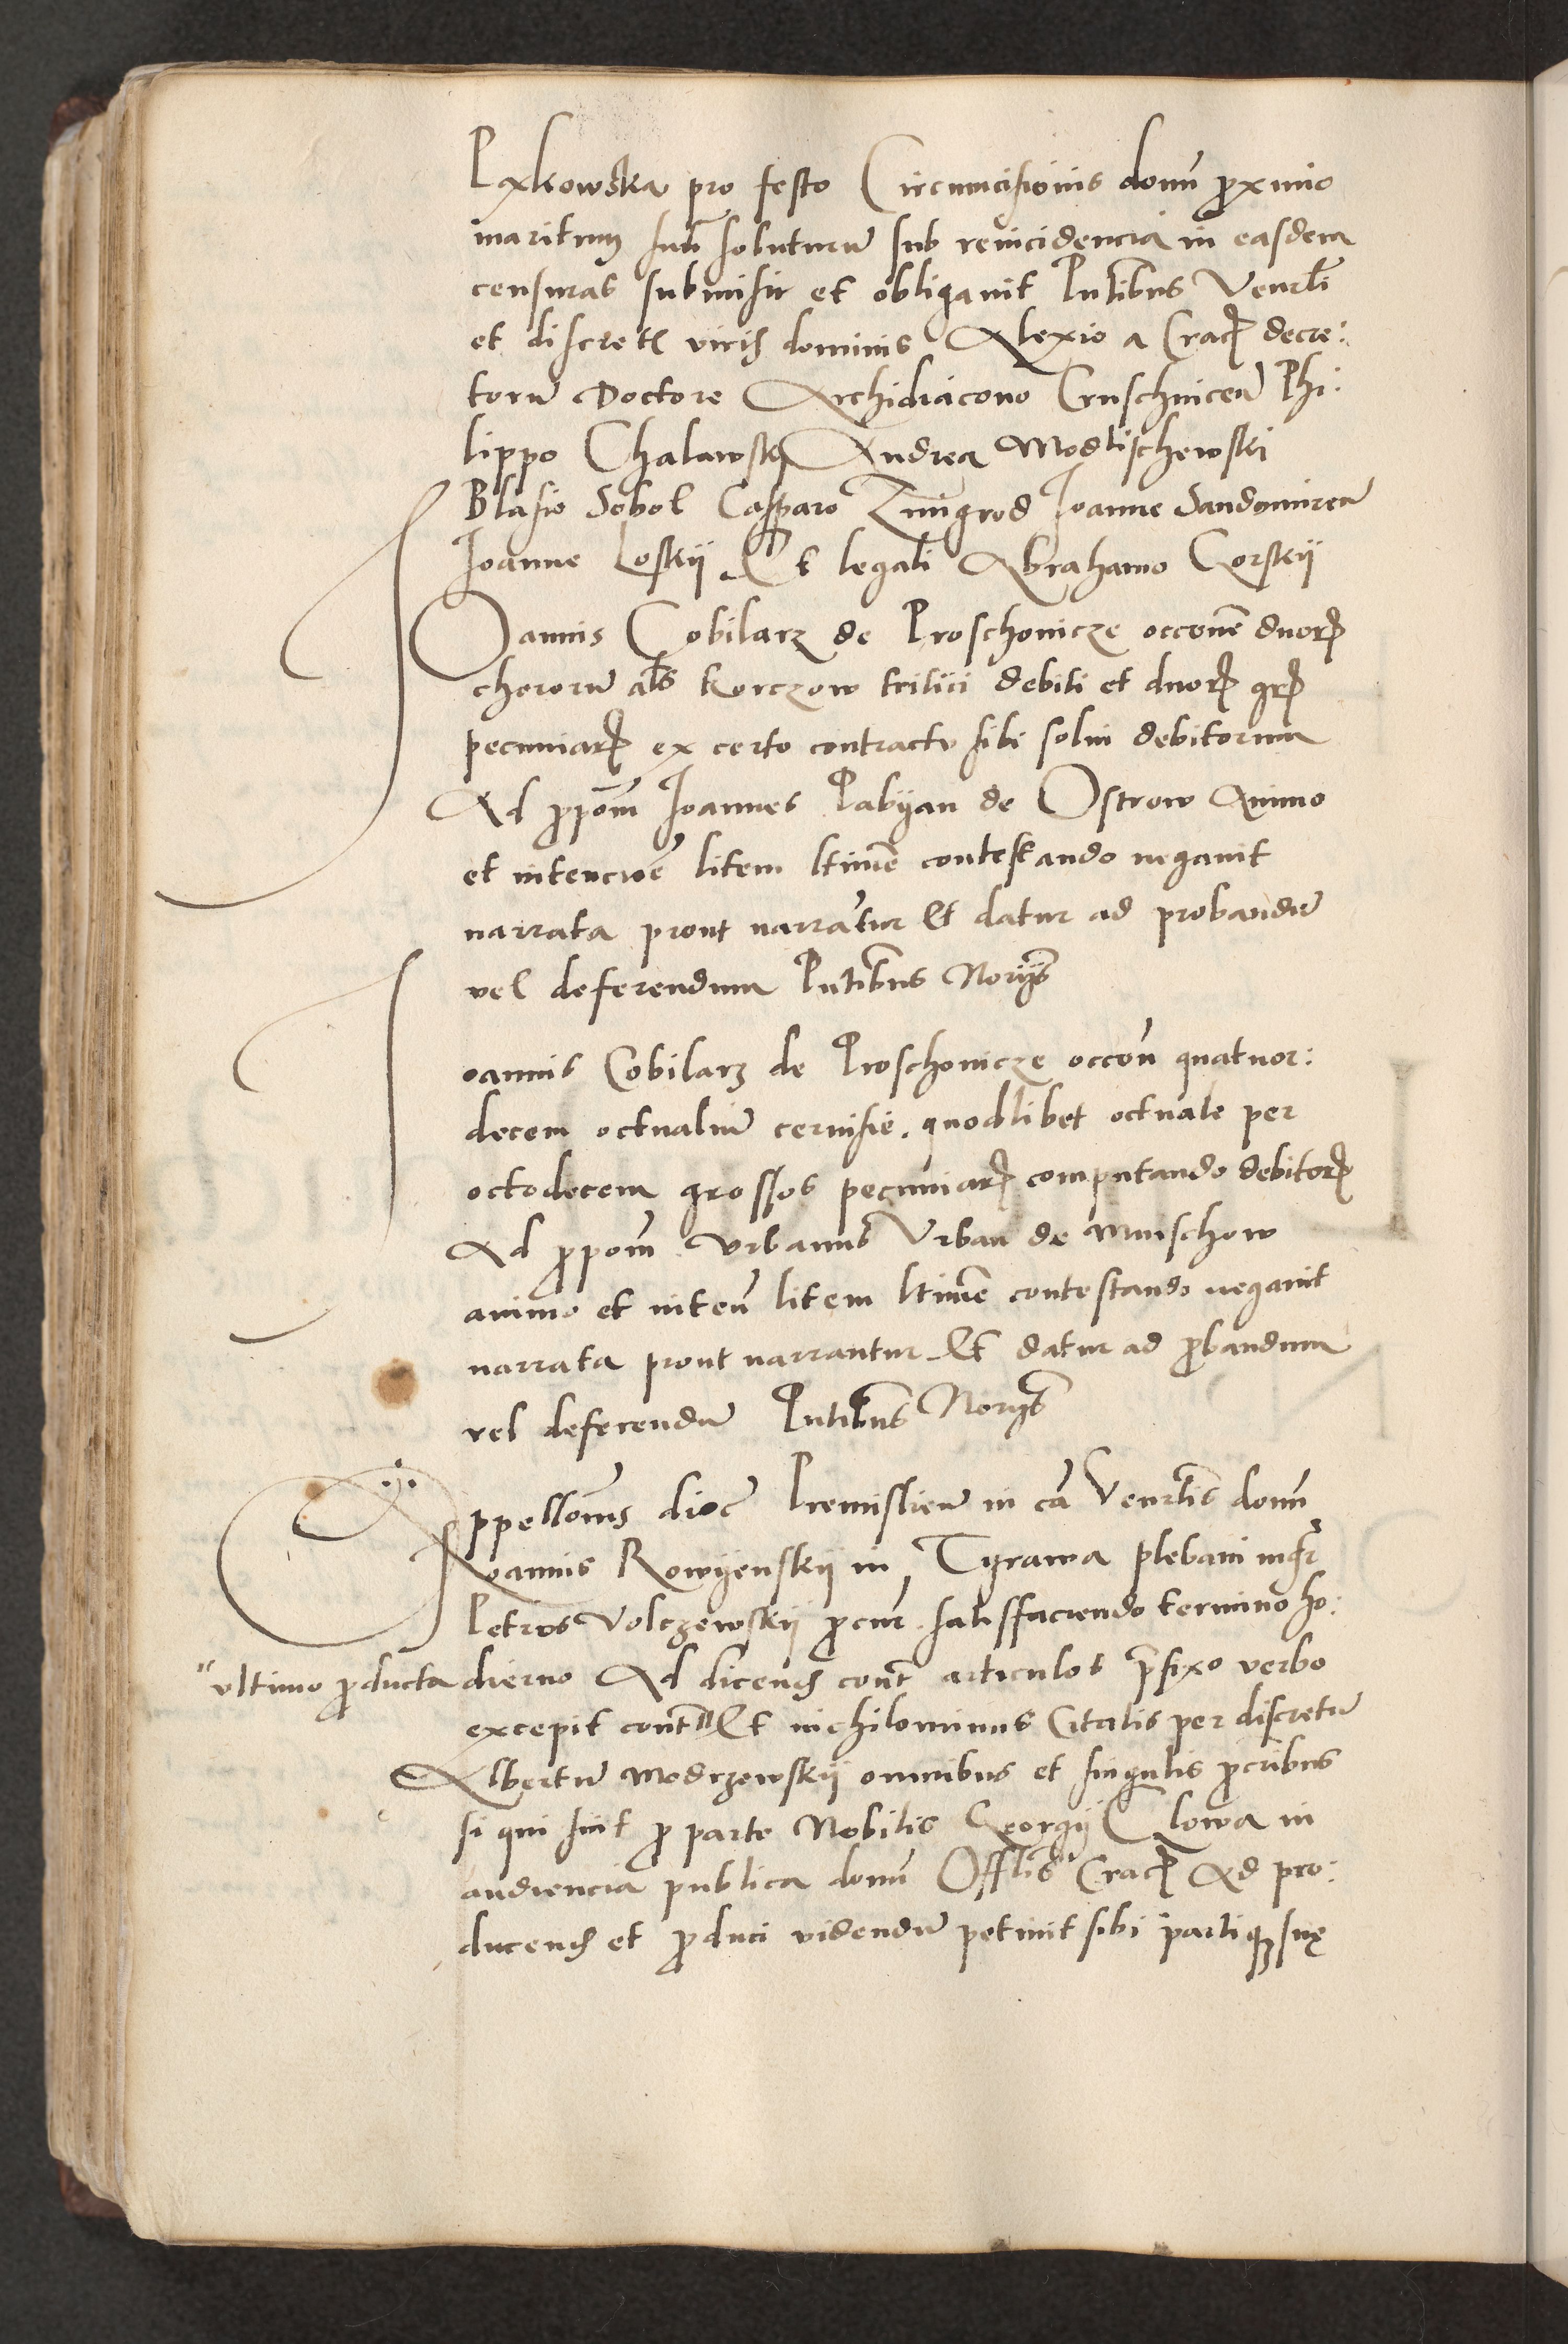 Lyxkowska pro festo Circumcisionis domi proximo
maritum suu soluturu sub reincidencia in easdem
censuras submisit et obligavit Pntibus Venerli
et discretis viris dominis Alexio a Crac decre:
toru Doctore Archidiacono Cruschvicen Phi:
lippo Chalawsky Andrea Modlischewski
Blasio Sobol Casparo Zmigrod Joanne Sandomiren
Joanne Loskij Et legali Abrahamo Gorskij
Joannis Cobilarz de Proschovicze occone duor
chororu als korczow tritici debiti et duor gr
pecuniar ex certo contractu sibi solvi debitorum
Ad ppom Joannes Pabyan de Ostrow Animo
et intencioe litem ltime contestando negavit
narrata prout narratur Et datur ad probandu
vel deferendum Pntibus Norijs
Joannis Cobilarz de Proschovicze occon quatuor:
decem octualiu cervisie. quodlibet octuale per
octodecem grossos pecuniar computando debitor
Ad ppom Urbanus Urban de Muischow
animo et inten litem ltime contestando negavit
narrata prout narrantur Et datur ad pbandum
vel deferendu Pntibus Norijs
Appellonis dioc Premislien in ca Venerlis domi
Joannis Rowyenskij in Tyrawa plebani mgr
Petrus Volczewskij pcur satisffaciendo termino ho:
"ultimo producta
dierno Ad dicend cont articulos prefixo verbo
excepit cont" Et nichilominus Citatis per discretu
Albertu Modrzewskij omnibus et singulis pcribus
si qui sint p parte Nobilis Georgij Clowa in
audiencia publica domi Offlis Crac Ad pro:
ducend et pduci videndu petivit sibi partique sue